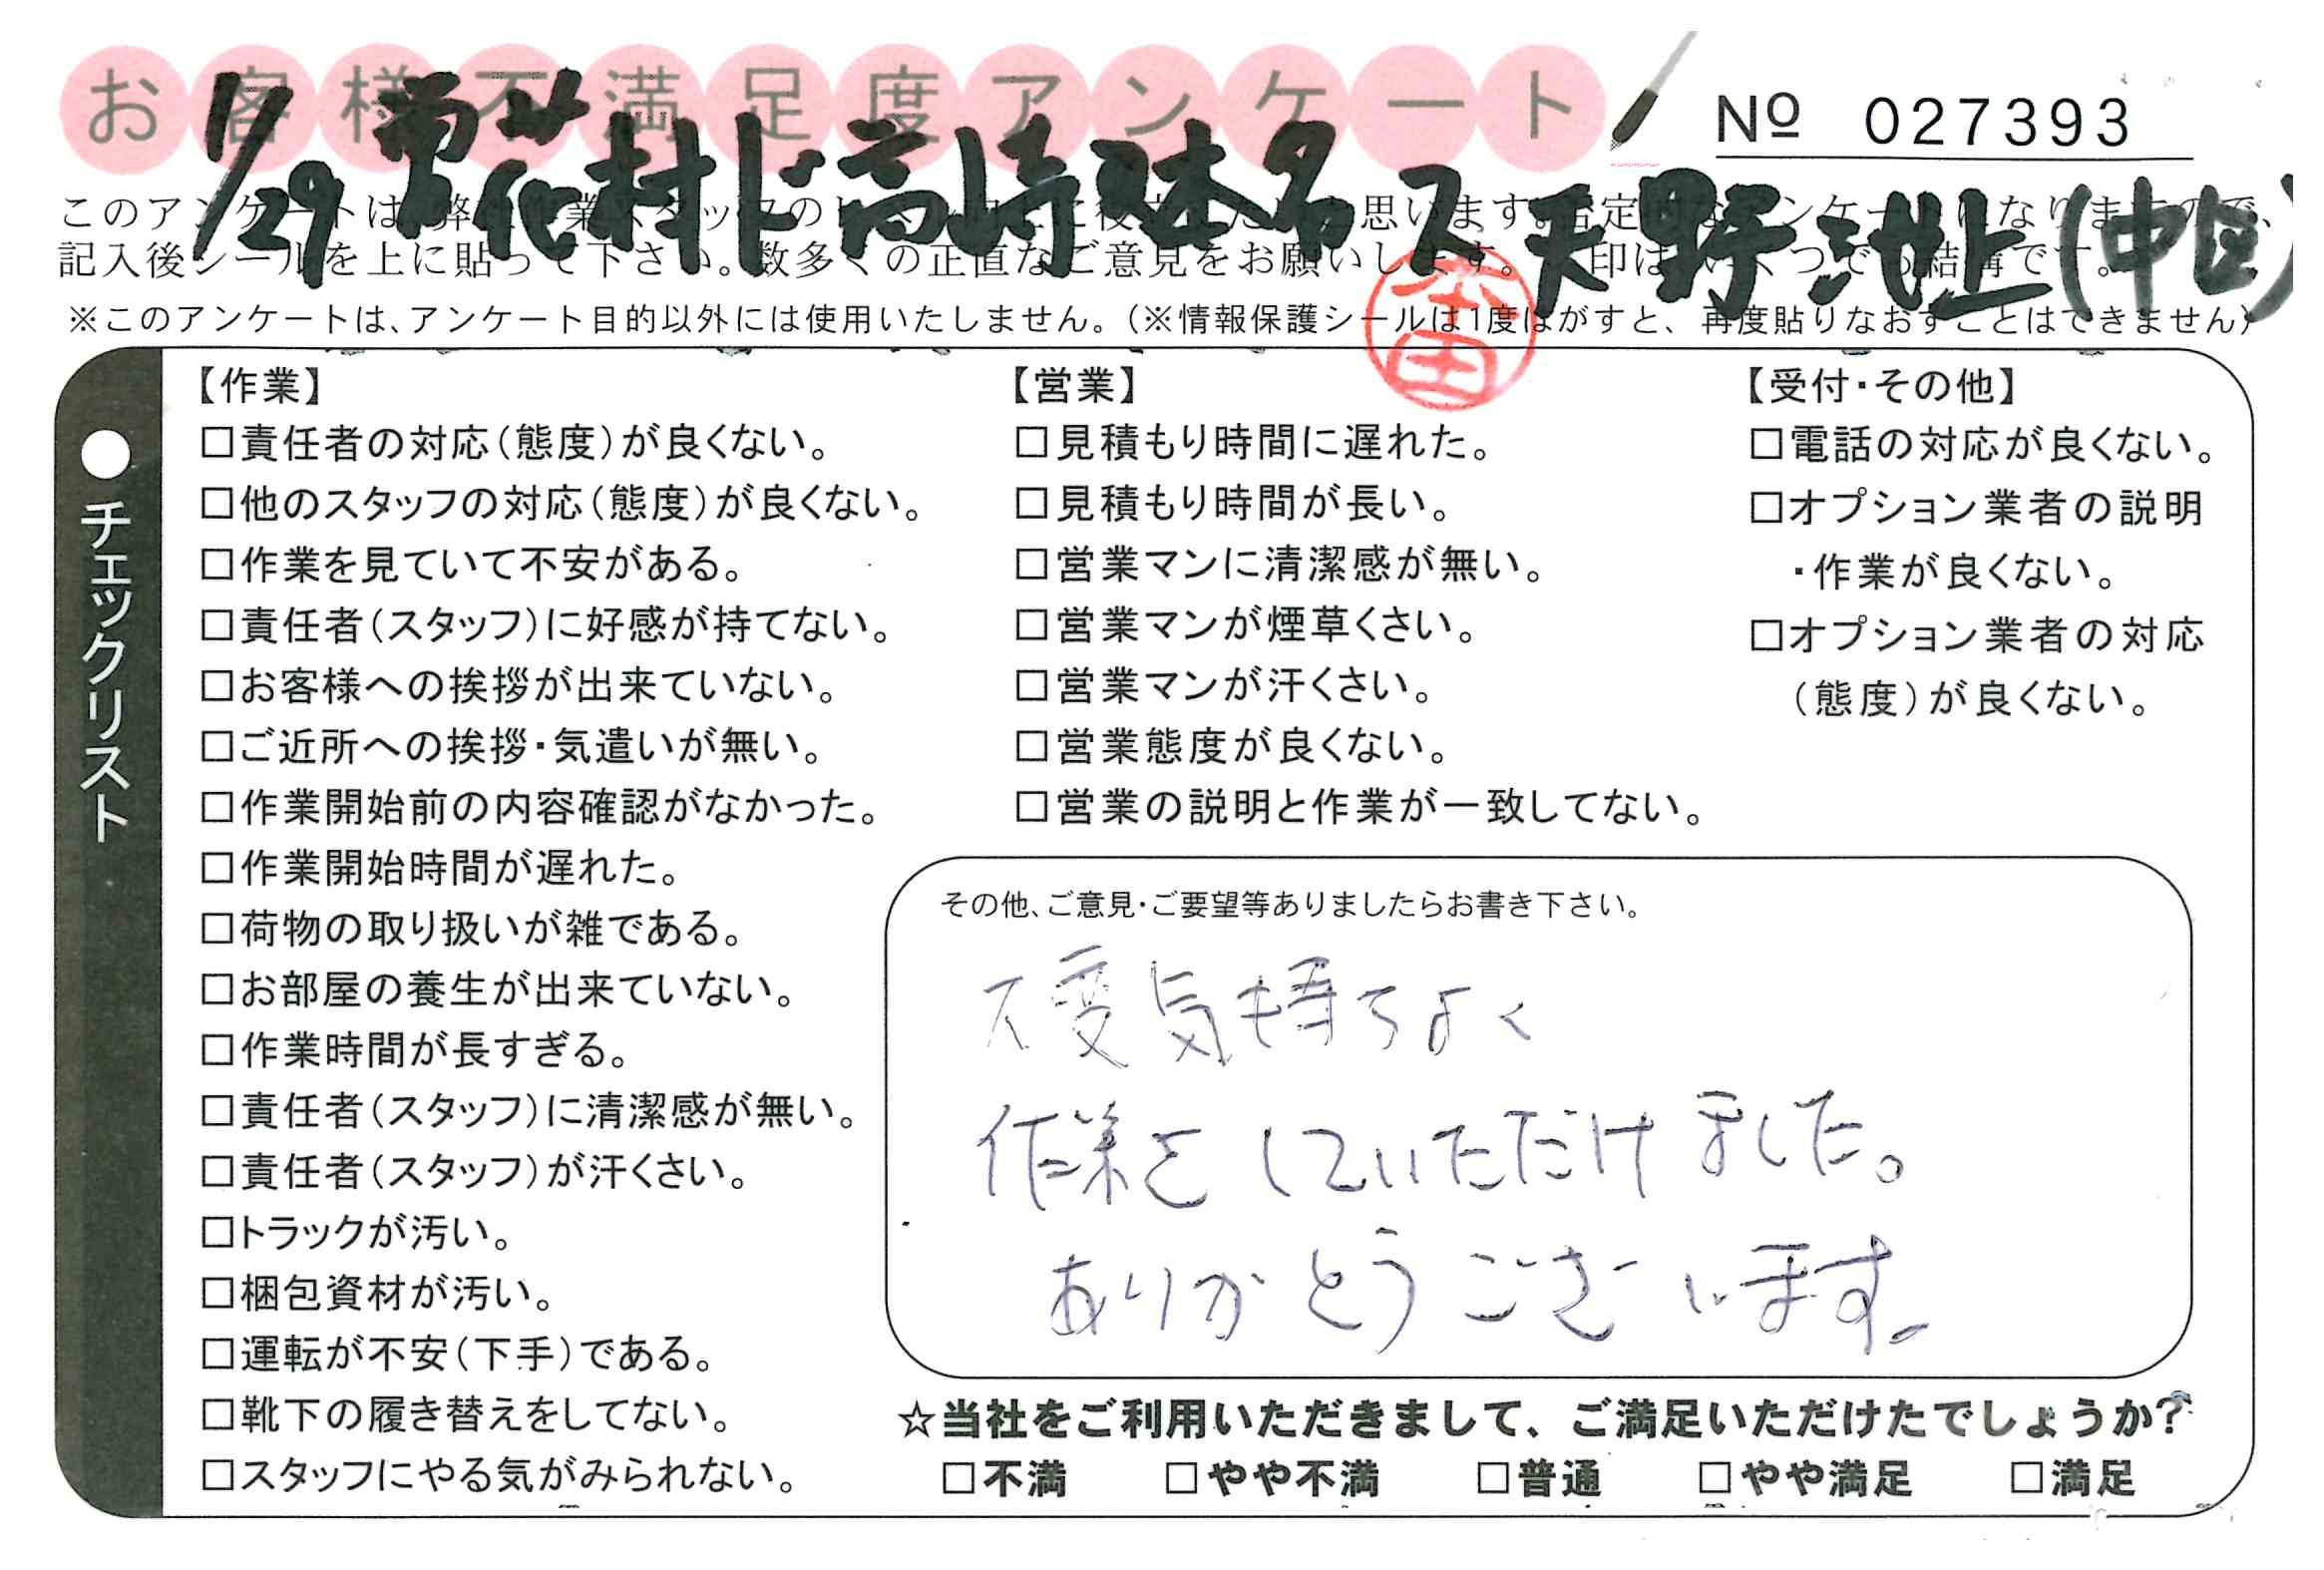 お客様不満足度アンケート
№ 027393
1/29
高崎
天野 池上(中区)
記入後シールを上に貼って下さい。数多くの正直なご意見をお願いします。 印はいくつでも結構です。
※このアンケートは、アンケート目的以外には使用いたしません。(※情報保護シールは1度はがすと、再度貼りなおすことはできません)
本田
●チェックリスト
【作業】
□責任者の対応(態度)が良くない。
□他のスタッフの対応(態度)が良くない。
□作業を見ていて不安がある。
□責任者(スタッフ)に好感が持てない。
□お客様への挨拶が出来ていない。
□ご近所への挨拶・気遣いが無い。
□作業開始前の内容確認がなかった。
□作業開始時間が遅れた。
□荷物の取り扱いが雑である。
□お部屋の養生が出来ていない。
□作業時間が長すぎる。
□責任者(スタッフ)に清潔感が無い。
□責任者(スタッフ)が汗くさい。
□トラックが汚い。
□梱包資材が汚い。
□運転が不安(下手)である。
□靴下の履き替えをしてない。
□スタッフにやる気がみられない。
【営業】
□見積もり時間に遅れた。
□見積もり時間が長い。
□営業マンに清潔感が無い。
□営業マンが煙草くさい。
□営業マンが汗くさい。
□営業態度が良くない。
□営業の説明と作業が一致してない。
【受付・その他】
□電話の対応が良くない。
□オプション業者の説明
・作業が良くない。
□オプション業者の対応
(態度)が良くない。
その他、ご意見・ご要望等ありましたらお書き下さい。
大変気持ちよく
作業をしていただけました。
ありがとうございます。
☆当社をご利用いただきまして、ご満足いただけたでしょうか?
□不満 □やや不満 □普通 □やや満足 □満足